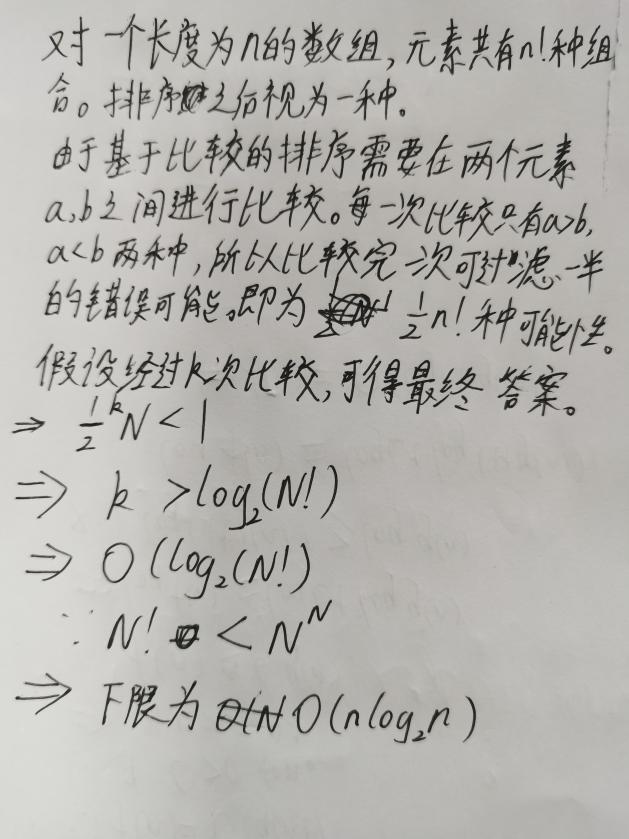 对一个长度为n的数组,元素共有n!种组
合。排序之后视为一种。
由于基于比较的排序需要在两个元素
a,b之间进行比较。每一次比较只有a>b,
a<b两种,所以比较完一次可过滤一半
的错误可能。即为 1/2 n! 种可能性。
假设经过k次比较,可得最终答案。
⇒ 1/2^k N < 1
⇒ k > log₂(N!)
⇒ O(log₂(N!)
∵ N! < N^N
⇒ 下限为 O(nlog₂n)